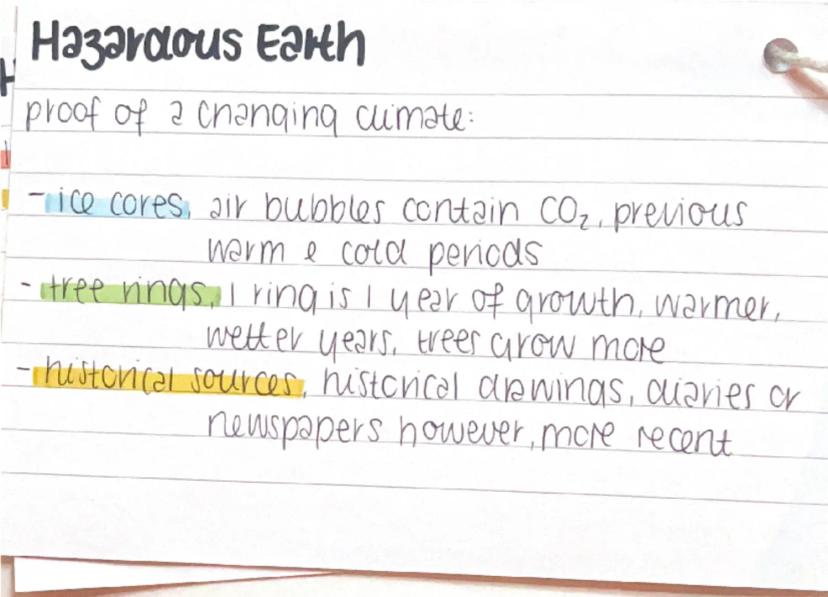 Hazardous Earth
proof of a changing climate:
- ice cores, air bubbles contain CO₂, previous
warm & cold periods
- tree rings, 1 ring is 1 year of growth, warmer,
wetter years, trees grow more
- historical sources, historical drawings, diaries or
newspapers however, more recent